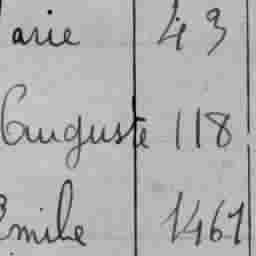 arie 43
Auguste 118
Emile 1461